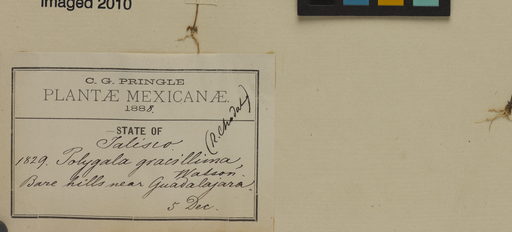 Imaged 2010
C. G. PRINGLE
PLANTÆ MEXICANÆ.
1888.
STATE OF
Jalisco.
(R. Chodat)
1829. Polygala gracillima,
Watson.
Bare hills near Guadalajara.
5 Dec.